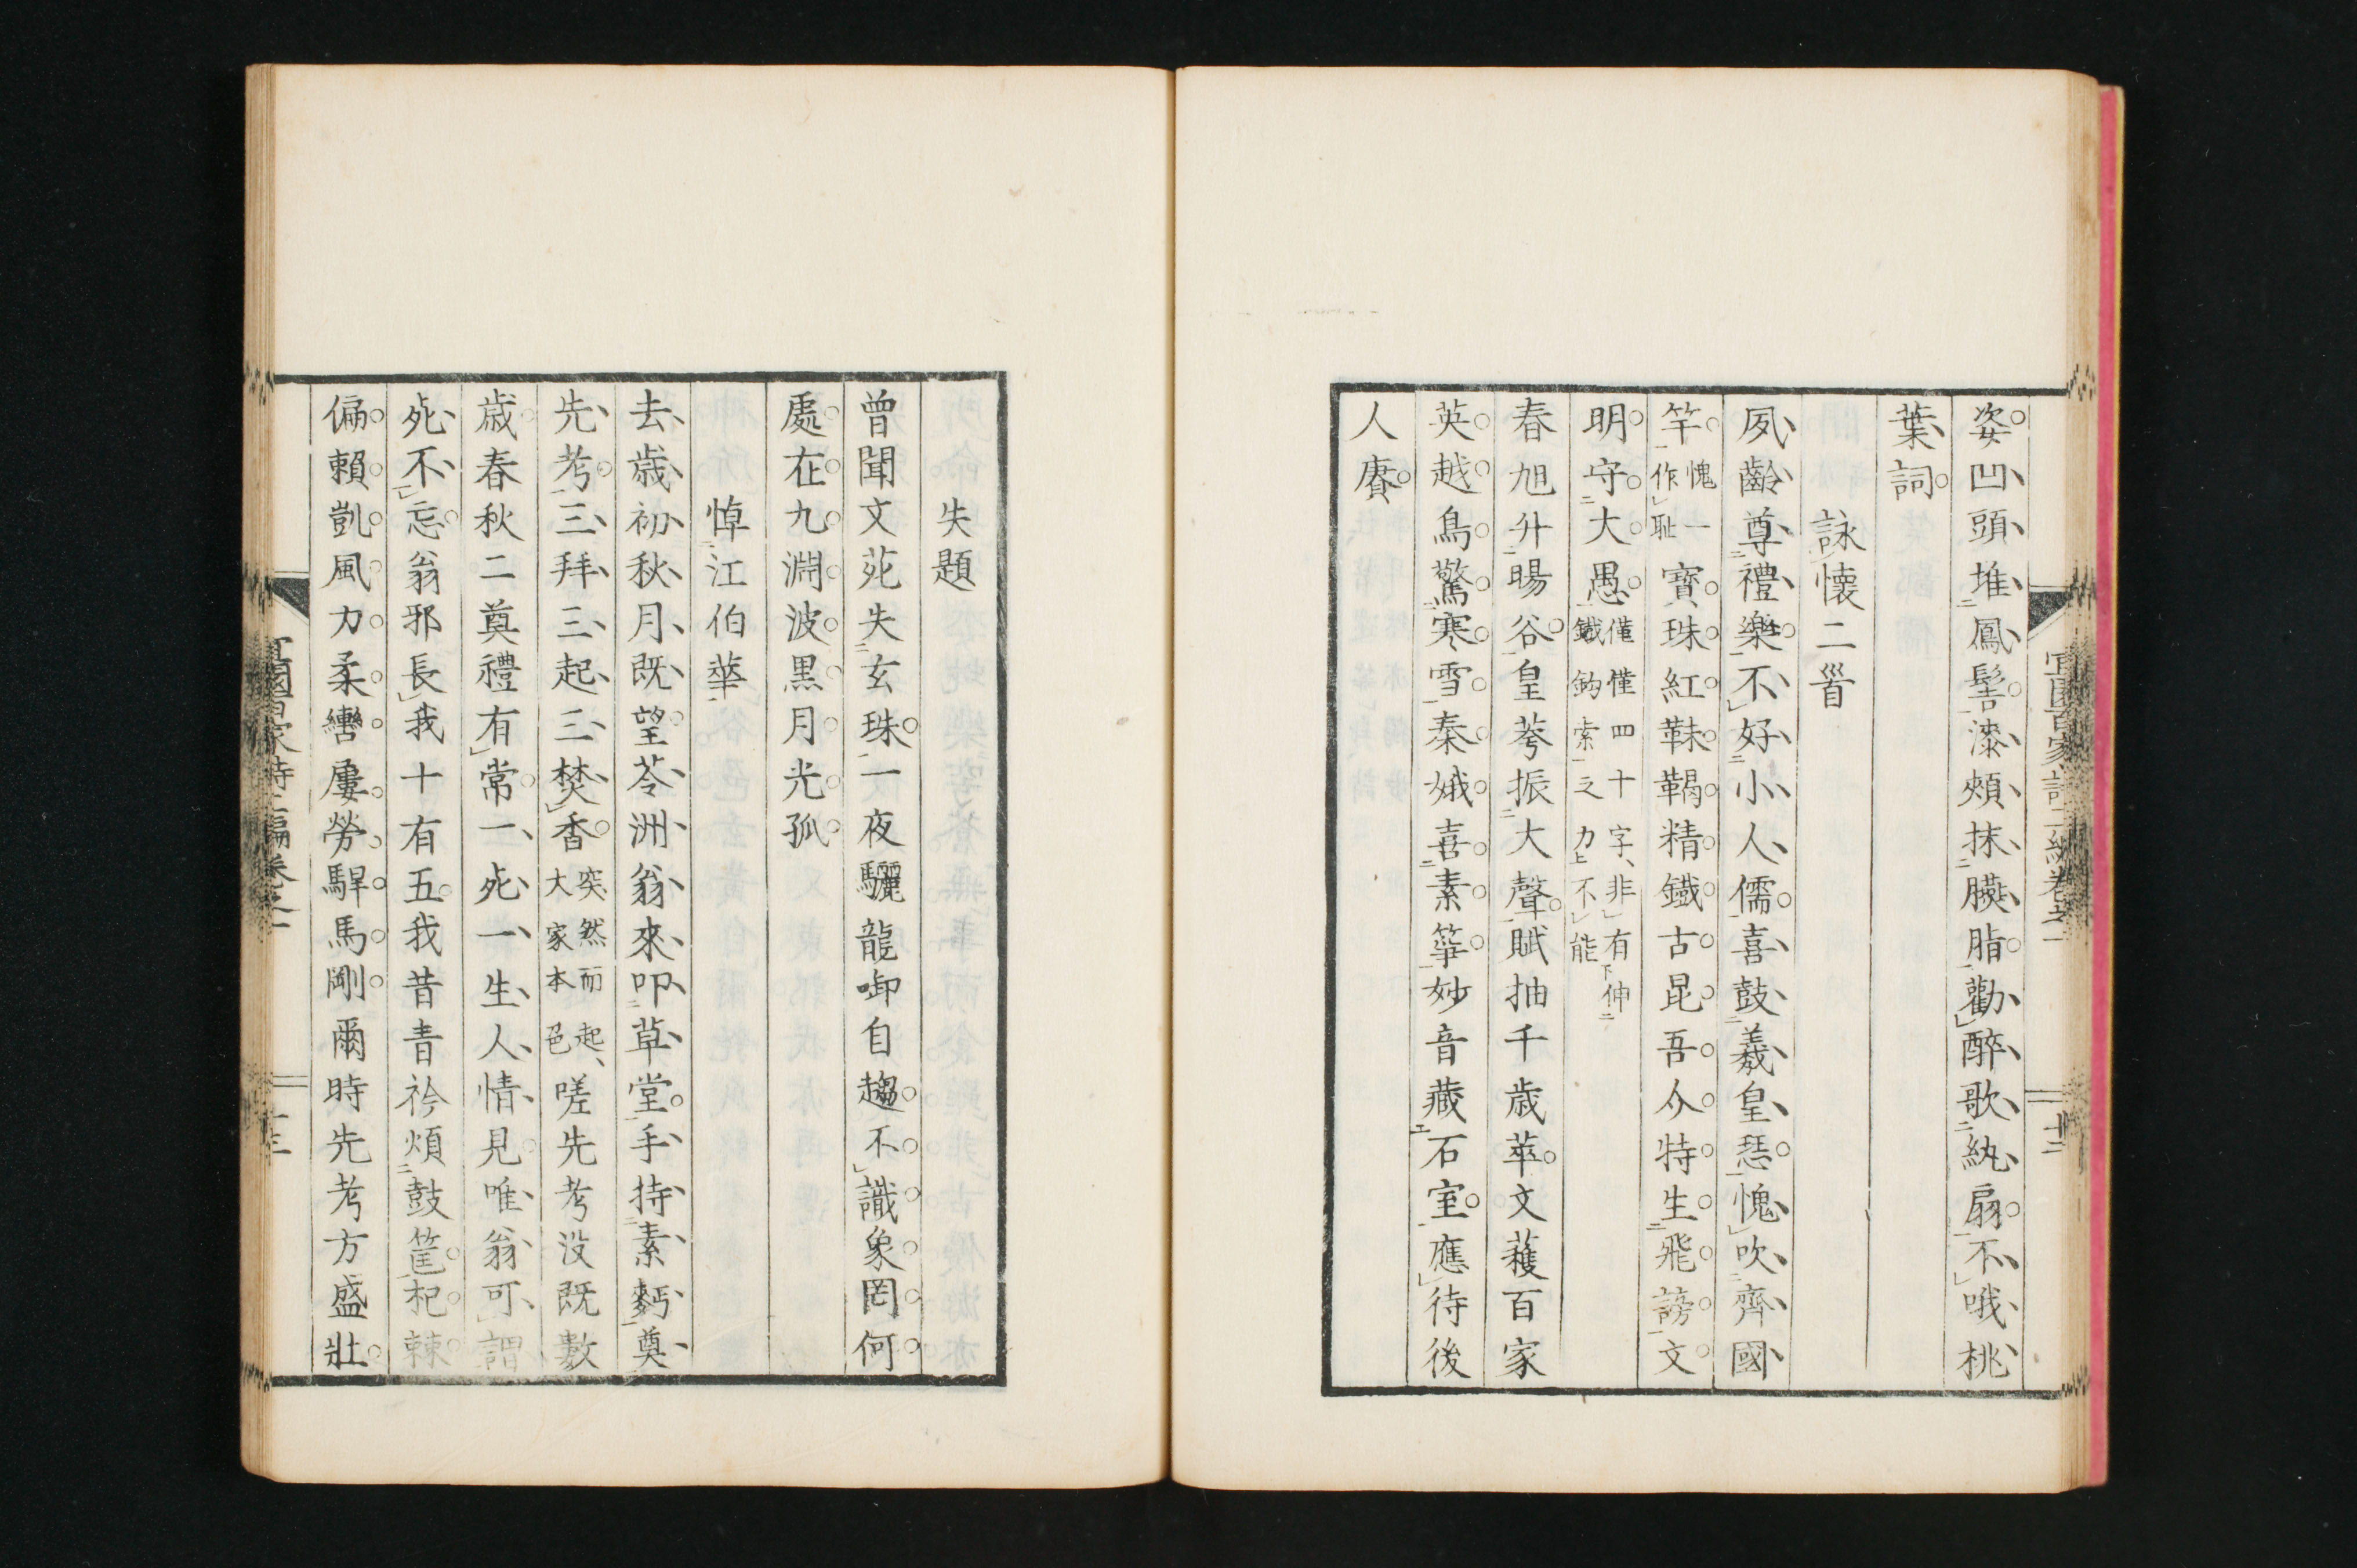 姿凹頭堆鳳髻漆頰抹臙脂勸醉歌紈扇不哦桃
葉詞
詠懷二首
夙齡尊禮樂不好小人儒喜鼓羲皇瑟愧吹齊國
竽愧一作耻寶珠紅靺鞨精鐵古昆吾今特生飛謗文
明守大愚僅僅四十字、非有伸鐵鈎索之力不能
春旭升暘谷皇荂振大聲賦抽千歳萃文蒦百家
英越鳥驚寒雪秦娥喜素箏妙音藏石室應待後
人賡
宜園百家詩二編卷之一
十二
失題
曾聞文苑失玄珠一夜驪龍啣自趨不識象罔何
處在九淵波黒月光孤
悼江伯華
去歳初秋月既望苓洲翁來叩草堂手持素麪奠
先考三拜三起三焚香突然而起、大家本色嗟先考没既數
歳春秋二奠禮有常一死一生人情見唯翁可謂
死不忘翁邪長我十有五我昔青衿煩鼓篋杞棘
偏賴凱風力柔轡屢勞駻馬剛爾時先考方盛壯
宜園百家詩二編卷之一
十三